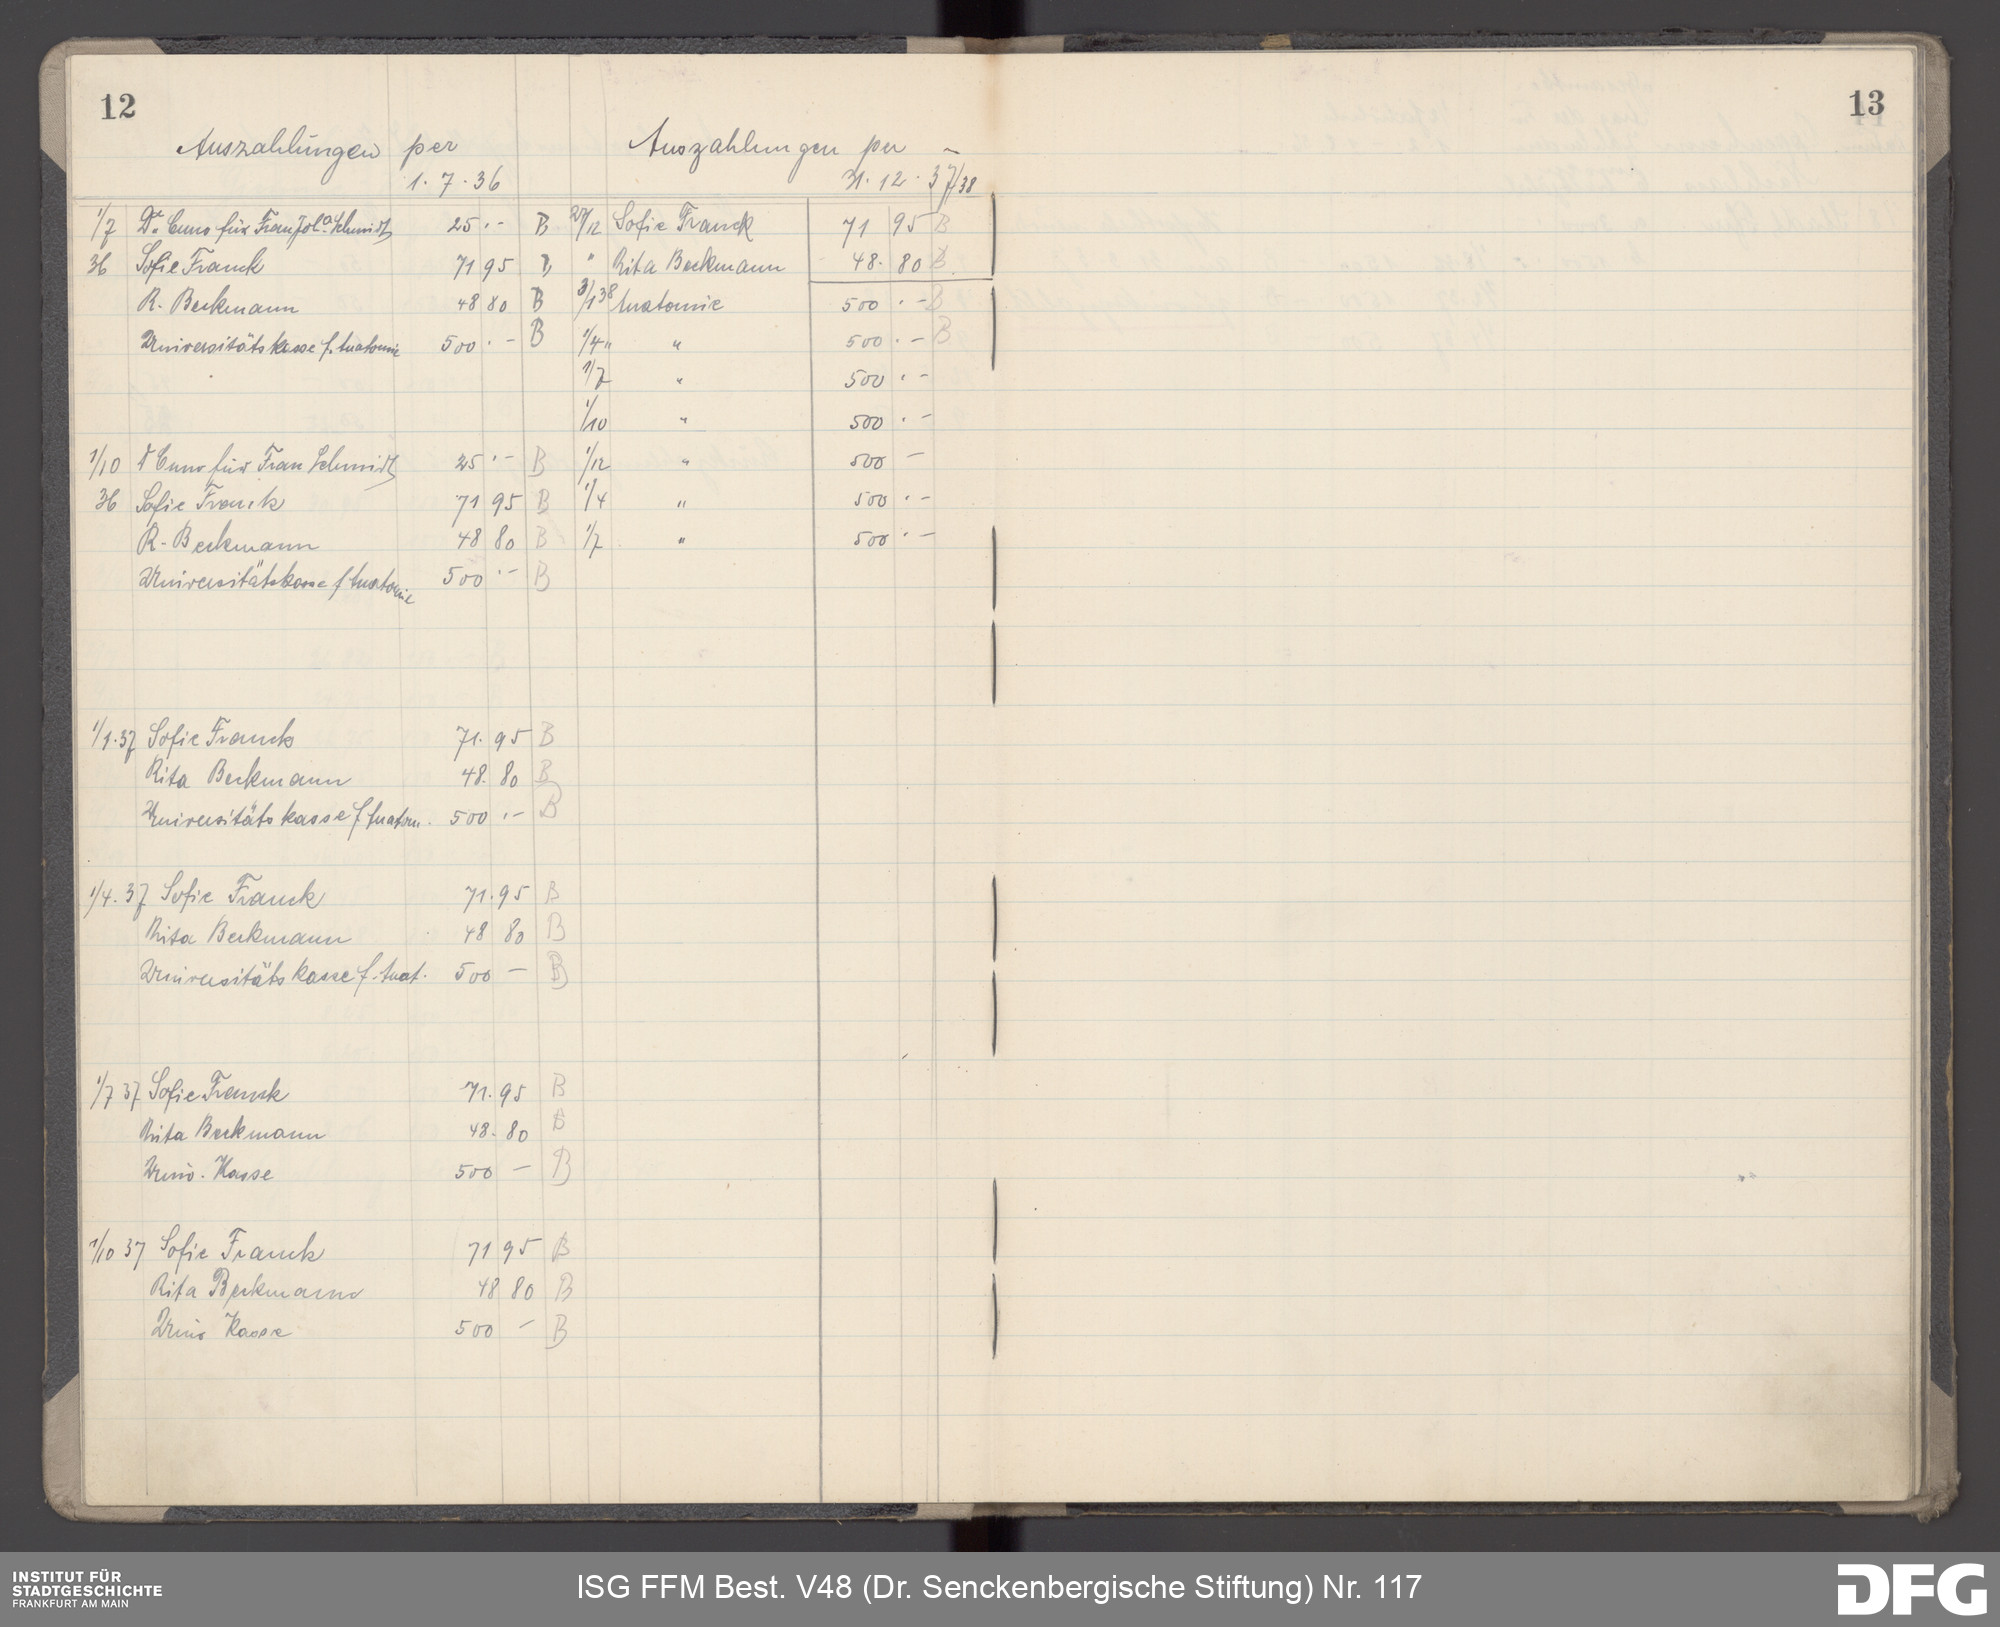 12
Auszahlungen per
1. 7. 36
1/7 Dr. Cuno für Frau Schmidt 25 .- B
36 Sofie Franck 71 95 B
R. Beckmann 48 80 B
Universitätskasse f. Anatomie 500 .- B
1/10 Cuno für Frau Schmidt 25 .- B
36 Sofie Franck 71 95 B
R. Beckmann 48 80 B
Universitätskasse f. Anatomie 500 .- B
1/1.37 Sofie Franck 71. 95 B
Rita Beckmann 48. 80 B
Universitätskasse f. Anatom. 500 .- B
1/4.37 Sofie Franck 71. 95 B
Rita Beckmann 48 80 B
Universitätskasse f. Anat. 500 - B
1/7 37 Sofie Franck 71. 95 B
Rita Beckmann 48. 80 B
Univ. Kasse 500 - B
1/10 37 Sofie Franck 71 95 B
Rita Beckmann 48 80 B
Univ Kasse 500 - B
Auszahlungen per
31. 12. 37/38
27/12 Sofie Franck 71 95 B
" Rita Beckmann 48. 80 B
3/1 38 Anatomie 500 .- B
1/4 " " 500 .- B
1/7 " 500 .-
1/10 " 500 .-
1/12 " 500 -
1/4 " 500 .-
1/7 " 500 .-
13
INSTITUT FÜR
STADTGESCHICHTE
FRANKFURT AM MAIN
ISG FFM Best. V48 (Dr. Senckenbergische Stiftung) Nr. 117
DFG